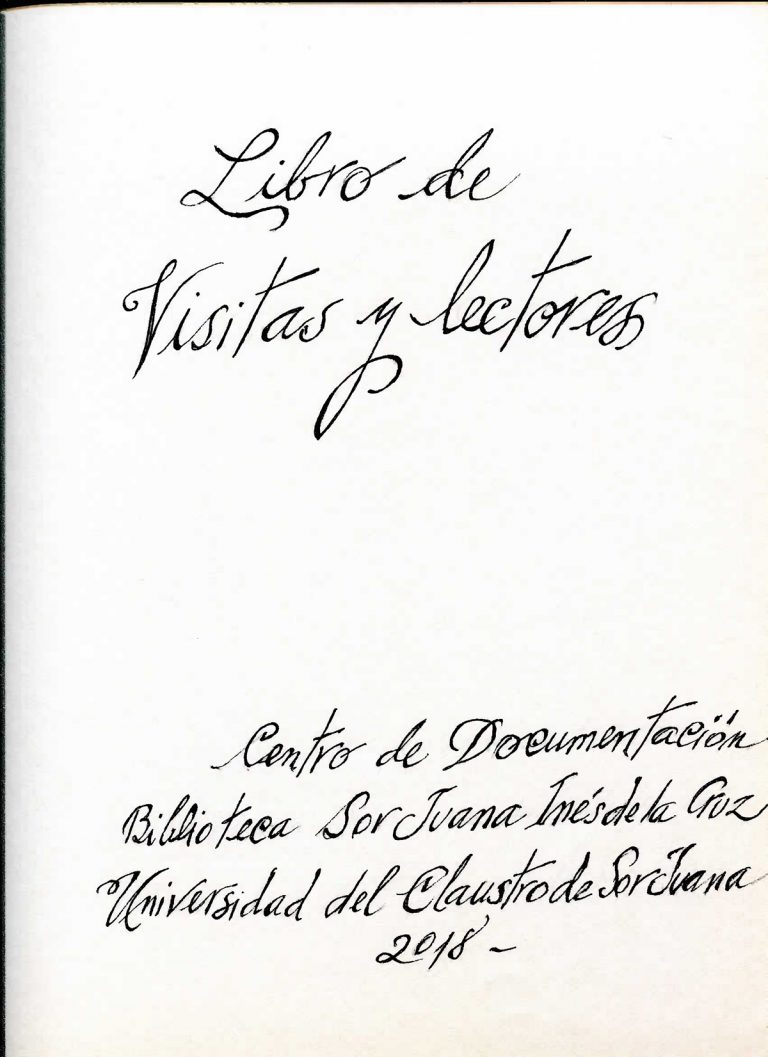 Libro de
Visitas y lectores
Centro de Documentación
Biblioteca Sor Juana Inés de la Cruz
Universidad del Claustro de Sor Juana
2018 -